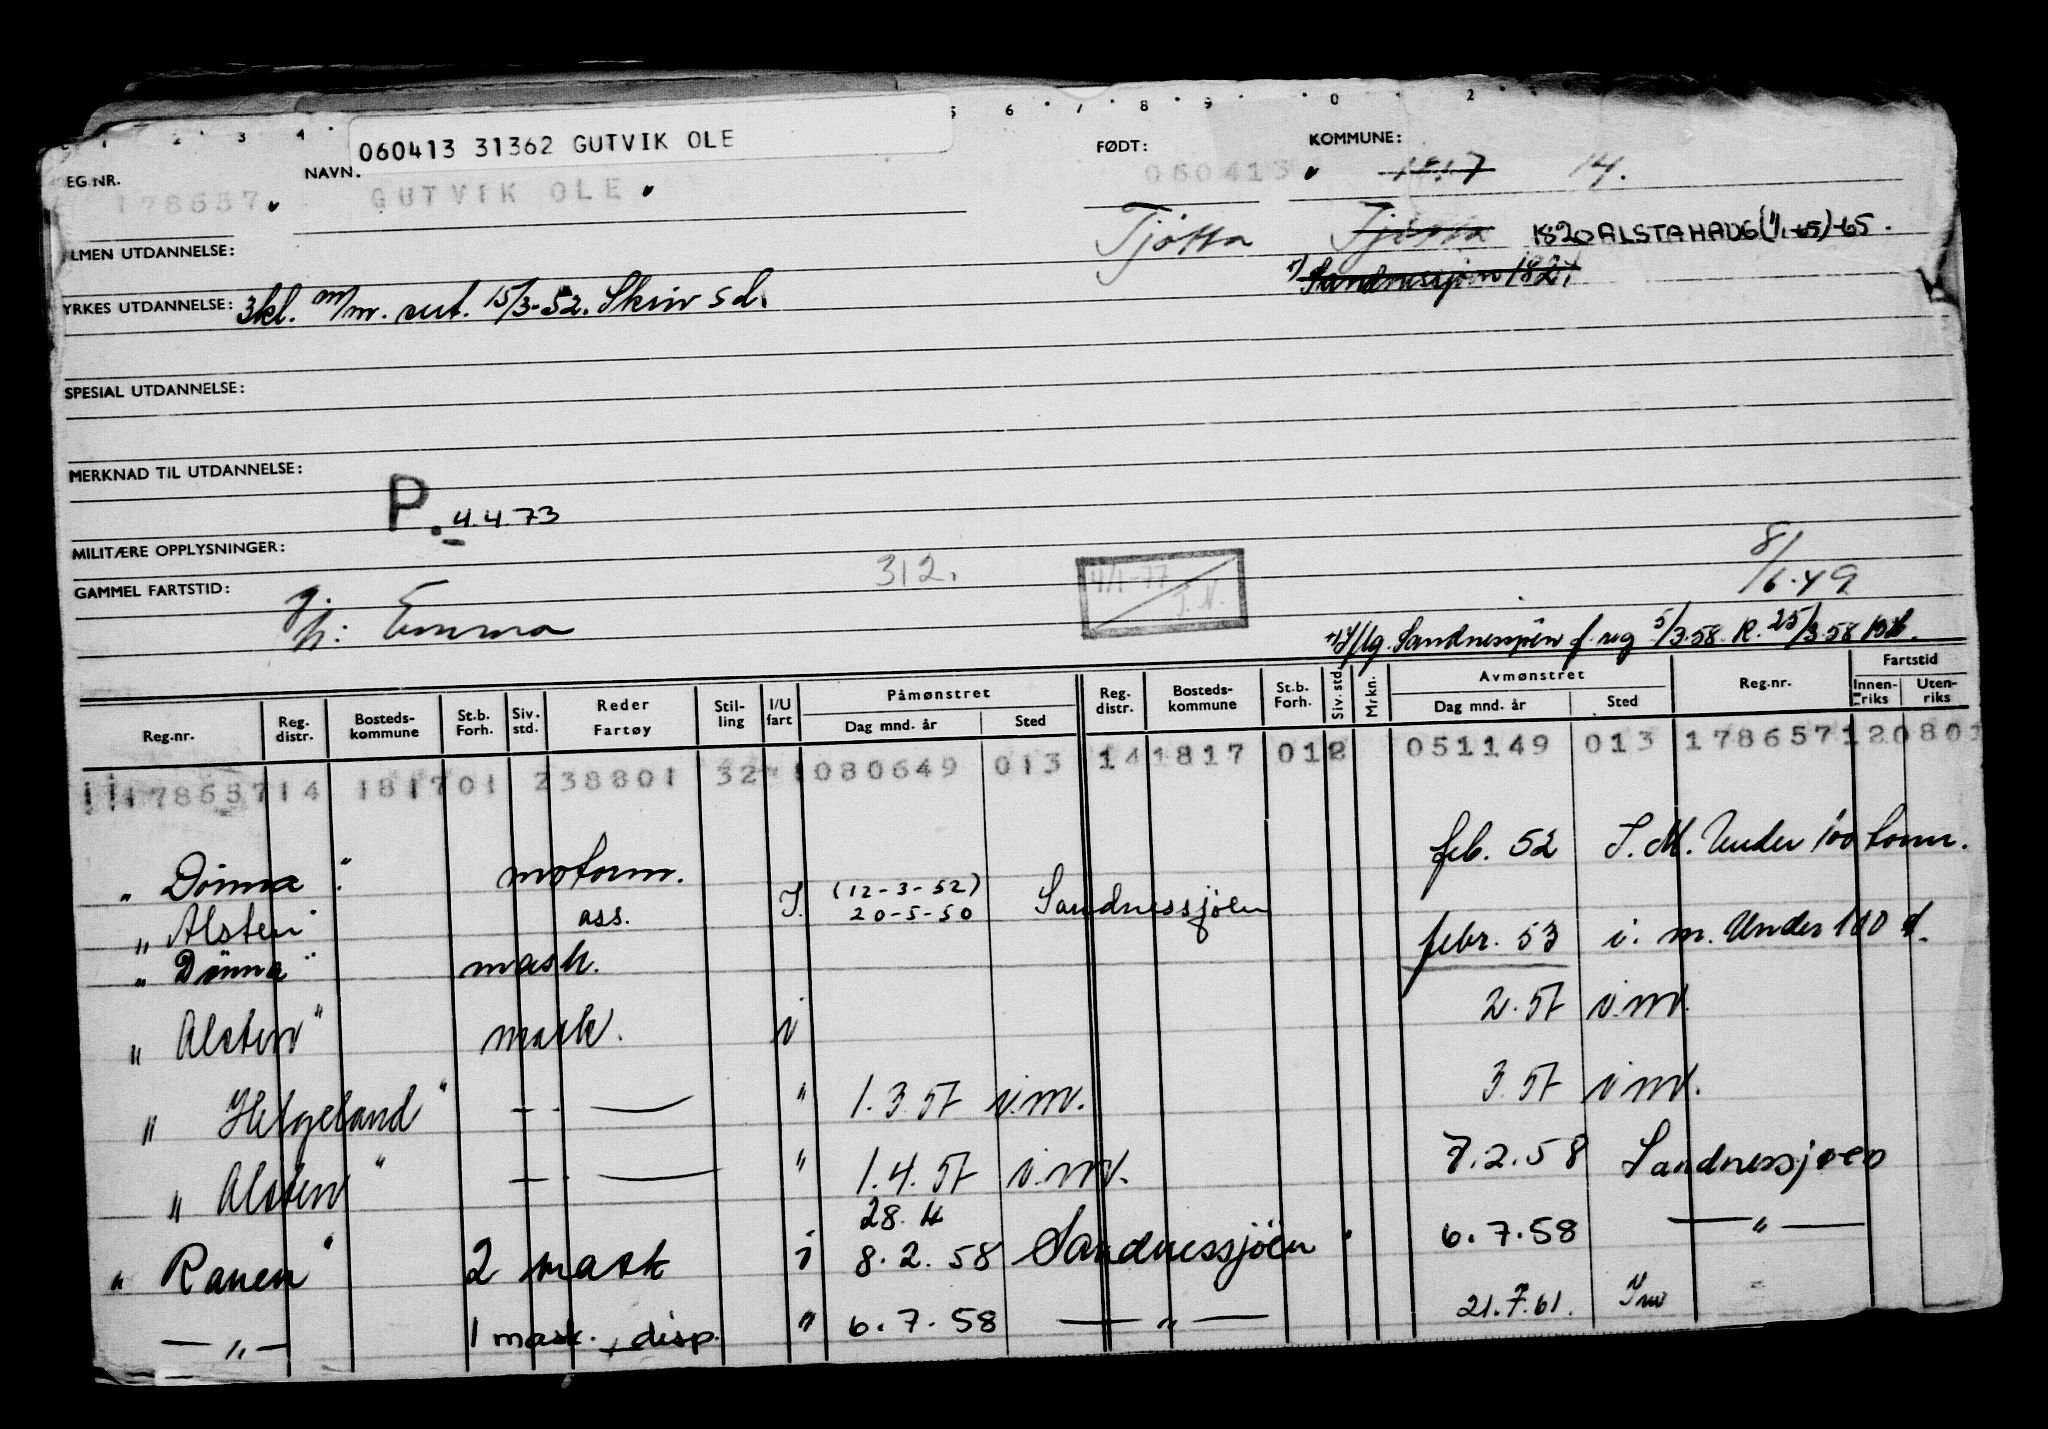 2 3 4 5 6 7 8 9 0 2
060413 31362 GUTVIK OLE
EG NR. NAVN. FØDT: KOMMUNE:
178657 GUTVIK OLE 060413 1817 14.
LMEN UTDANNELSE: Tjøtta Tjøtta 1820 ALSTAHAUG (1/1-65)-65.
YRKES UTDANNELSE: 3kl. m/m. sert. 15/3-52. Skriv sd. Sandnessjøen 1821
SPESIAL UTDANNELSE:
MERKNAD TIL UTDANNELSE:
P. 4.4.73
MILITÆRE OPPLYSNINGER:
312. 4/1-77 8/6.49
GAMMEL FARTSTID:
Emma
Sandnessjøen f. reg 5/3.58. R. 25/3.58
Reg.nr. Reg. distr. Bosteds-kommune St.b. Forh. Siv. std. Reder Fartøy Stil-ling I/U fart Påmønstret Dag mnd. år Sted Reg. distr. Bosteds-kommune St.b. Forh. Siv. std. Mrkn. Avmønstret Dag mnd. år Sted Reg.nr. Fartstid Innen-riks Uten-riks
17865714 181701 238801 32 1080649 013 141817 012 051149 013 178657120801
" Dönna " motorm. feb. 52 I. M. Under 100 tonn.
" Alsten " ass. I. (12-3-52) 20-5-50 Sandnessjöen
" Dönna " mask. febr. 53 i. m. Under 100 t.
" Alsten " mask. i 2.57 i.m.
" Helgeland " — " — " 1.3.57 i.m. 3.57 i.m.
" Alsten " — " — " 1.4.57 i.m. 7.2.58 Sandnessjøen
28.4
" Ranen " 2 mask i 8.2.58 Sandnessjöen 6.7.58 — " —
— " — 1 mask. disp. " 6.7.58 — " — 21.7.61.